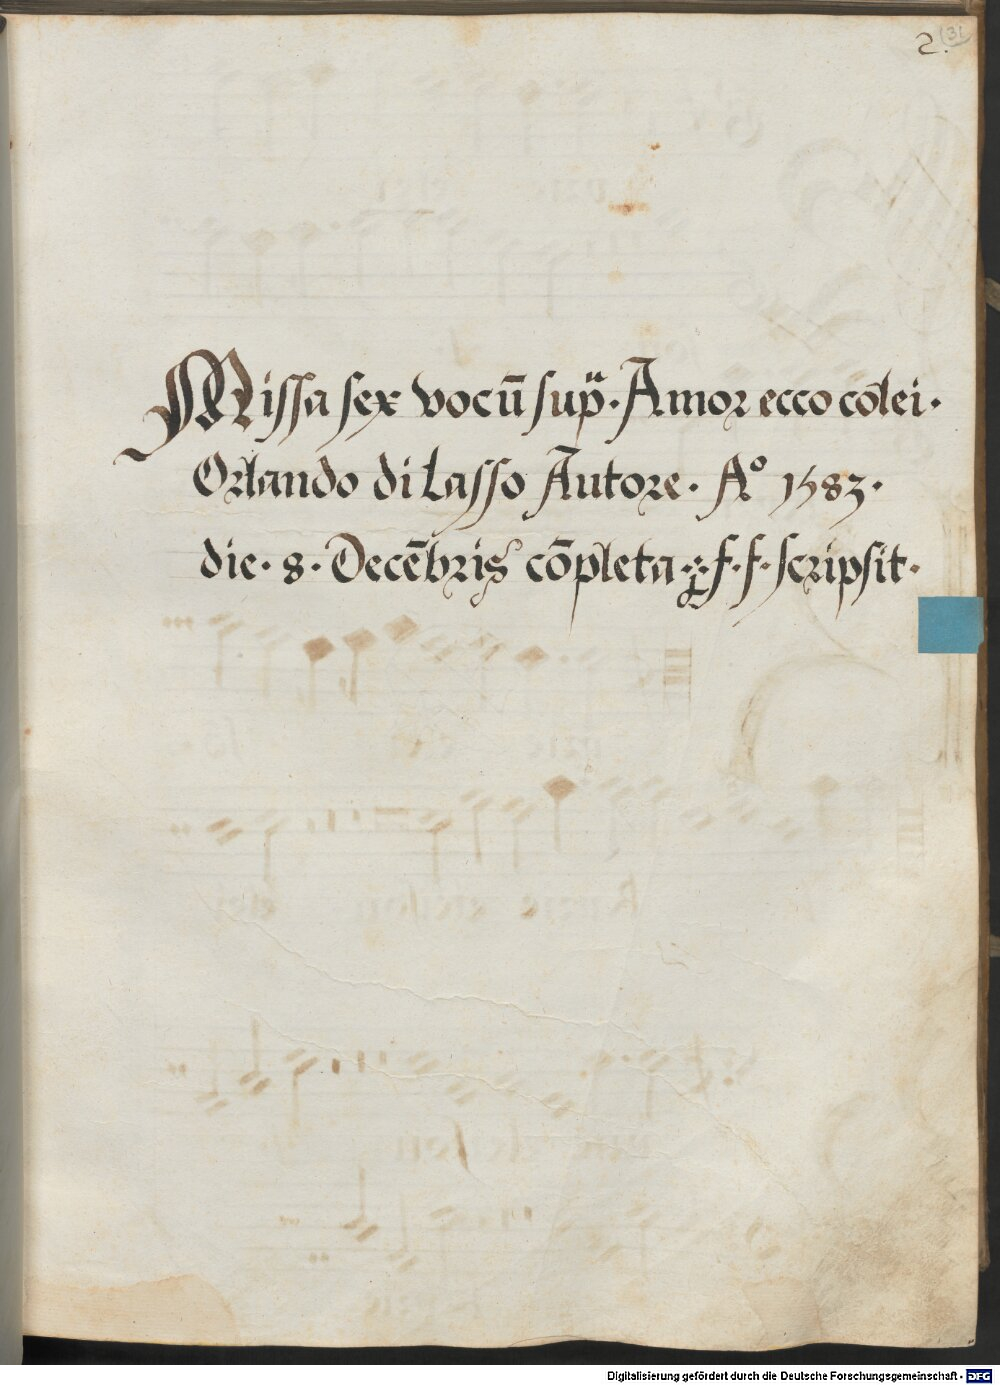 2.
(3)
Missa sex vocū sup̈. Amor ecco colei.
Orlando di Lasso Autore. A° 1583.
die. 8. Decēbris cōpleta f. f. scripsit.
Digitalisierung gefördert durch die Deutsche Forschungsgemeinschaft - DFG